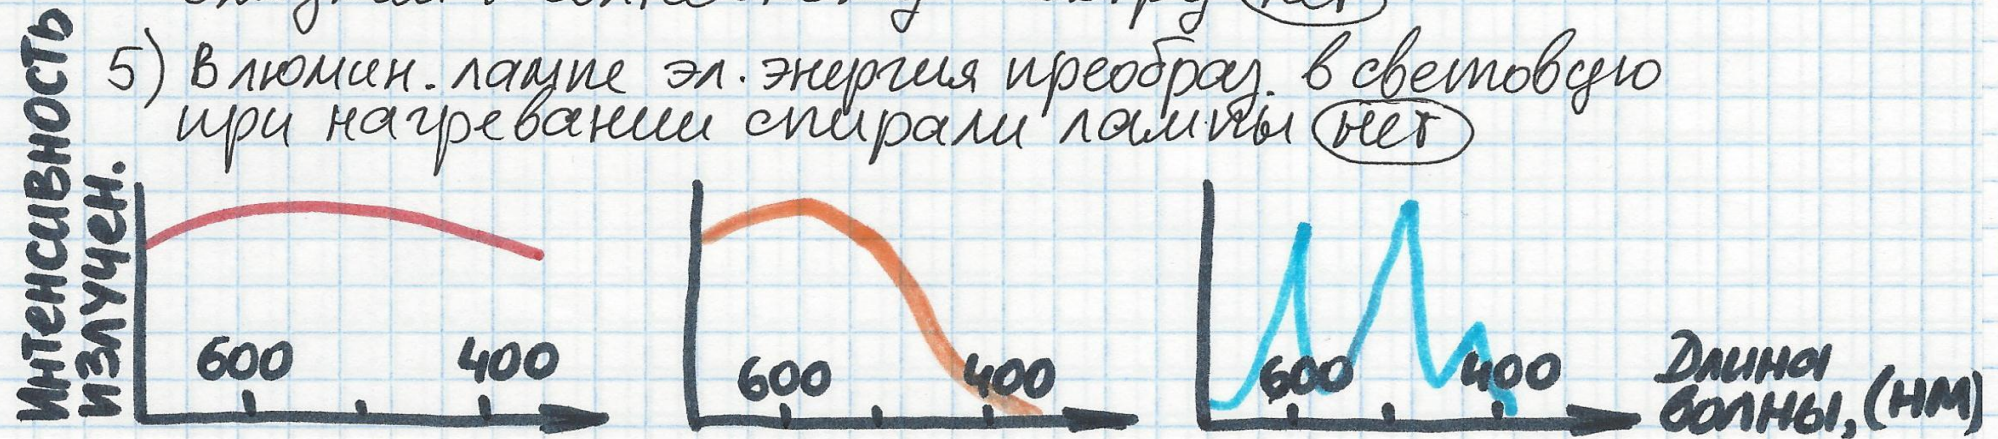 нет
5) В люмин. лампе эл. энергия преобраз. в световую
при нагревании спирали лампы нет
Интенсивность
излучен.
600 400
600 400
600 400
Длина
волны, (нм)